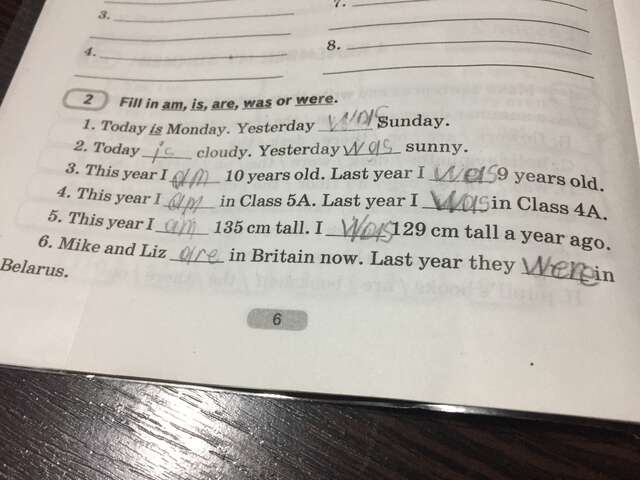 3.
4.
7.
8.
2 Fill in am, is, are, was or were.
1. Today is Monday. Yesterday was Sunday.
2. Today is cloudy. Yesterday was sunny.
3. This year I am 10 years old. Last year I was 9 years old.
4. This year I am in Class 5A. Last year I was in Class 4A.
5. This year I am 135 cm tall. I was 129 cm tall a year ago.
6. Mike and Liz are in Britain now. Last year they were in
Belarus.
6